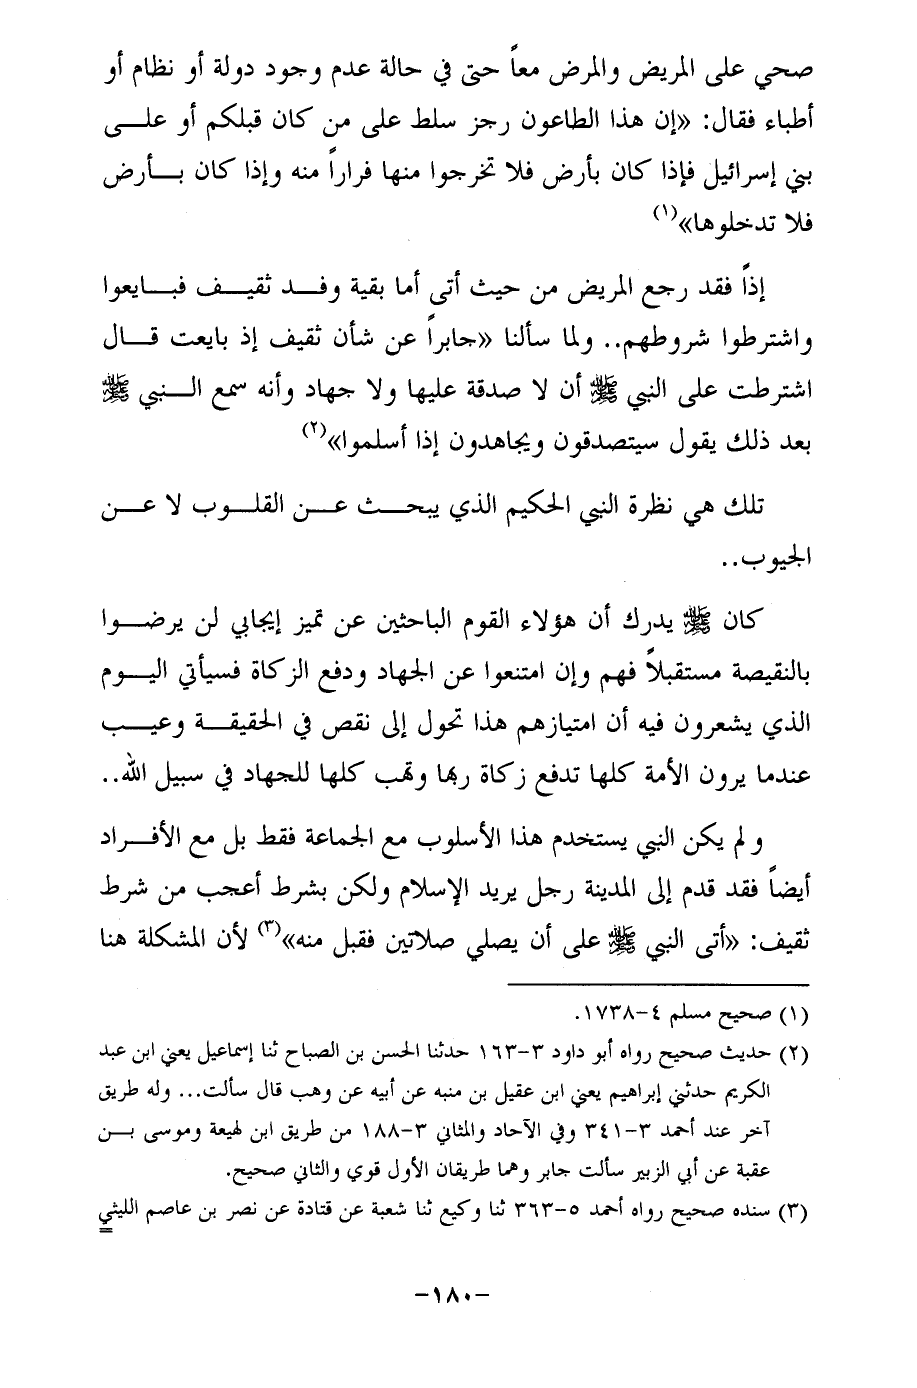 صحي على المريض والمرض معاً حتى في حالة عدم وجود دولة أو نظام أو
أطباء فقال: «إن هذا الطاعون رجز سلط على من كان قبلكم أو علـــى
بني إسرائيل فإذا كان بأرض فلا تخرجوا منها فراراً منه وإذا كان بـــأرض
فلا تدخلوها»(١)
إذاً فقد رجع المريض من حيث أتى أما بقية وفـــد ثقيـــف فبـــايعوا
واشترطوا شروطهم.. ولما سألنا «جابراً عن شأن ثقيف إذ بايعت قـــال
اشترطت على النبي ﷺ أن لا صدقة عليها ولا جهاد وأنه سمع الـــنبي ﷺ
بعد ذلك يقول سيتصدقون ويجاهدون إذا أسلموا»(٢)
تلك هي نظرة النبي الحكيم الذي يبحـــث عـــن القلـــوب لا عـــن
الجيوب..
كان ﷺ يدرك أن هؤلاء القوم الباحثين عن تميز إيجابي لن يرضـــوا
بالنقيصة مستقبلاً فهم وإن امتنعوا عن الجهاد ودفع الزكاة فسيأتي اليـــوم
الذي يشعرون فيه أن امتيازهم هذا تحول إلى نقص في الحقيقـــة وعيـــب
عندما يرون الأمة كلها تدفع زكاة ربها وتهب كلها للجهاد في سبيل الله..
ولم يكن النبي يستخدم هذا الأسلوب مع الجماعة فقط بل مع الأفـــراد
أيضاً فقد قدم إلى المدينة رجل يريد الإسلام ولكن بشرط أعجب من شرط
ثقيف: «أتى النبي ﷺ على أن يصلي صلاتين فقبل منه»(٣) لأن المشكلة هنا
(١) صحيح مسلم ٤-١٧٣٨.
(٢) حديث صحيح رواه أبو داود ٣-١٦٣ حدثنا الحسن بن الصباح ثنا إسماعيل يعني ابن عبد
الكريم حدثني إبراهيم يعني ابن عقيل بن منبه عن أبيه عن وهب قال سألت... وله طريق
آخر عند أحمد ٣-٣٤١ وفي الآحاد والمثاني ٣-١٨٨ من طريق ابن لهيعة وموسى بـــن
عقبة عن أبي الزبير سألت جابر وهما طريقان الأول قوي والثاني صحيح.
(٣) سنده صحيح رواه أحمد ٥-٣٦٣ ثنا وكيع ثنا شعبة عن قتادة عن نصر بن عاصم الليثي
-١٨٠-